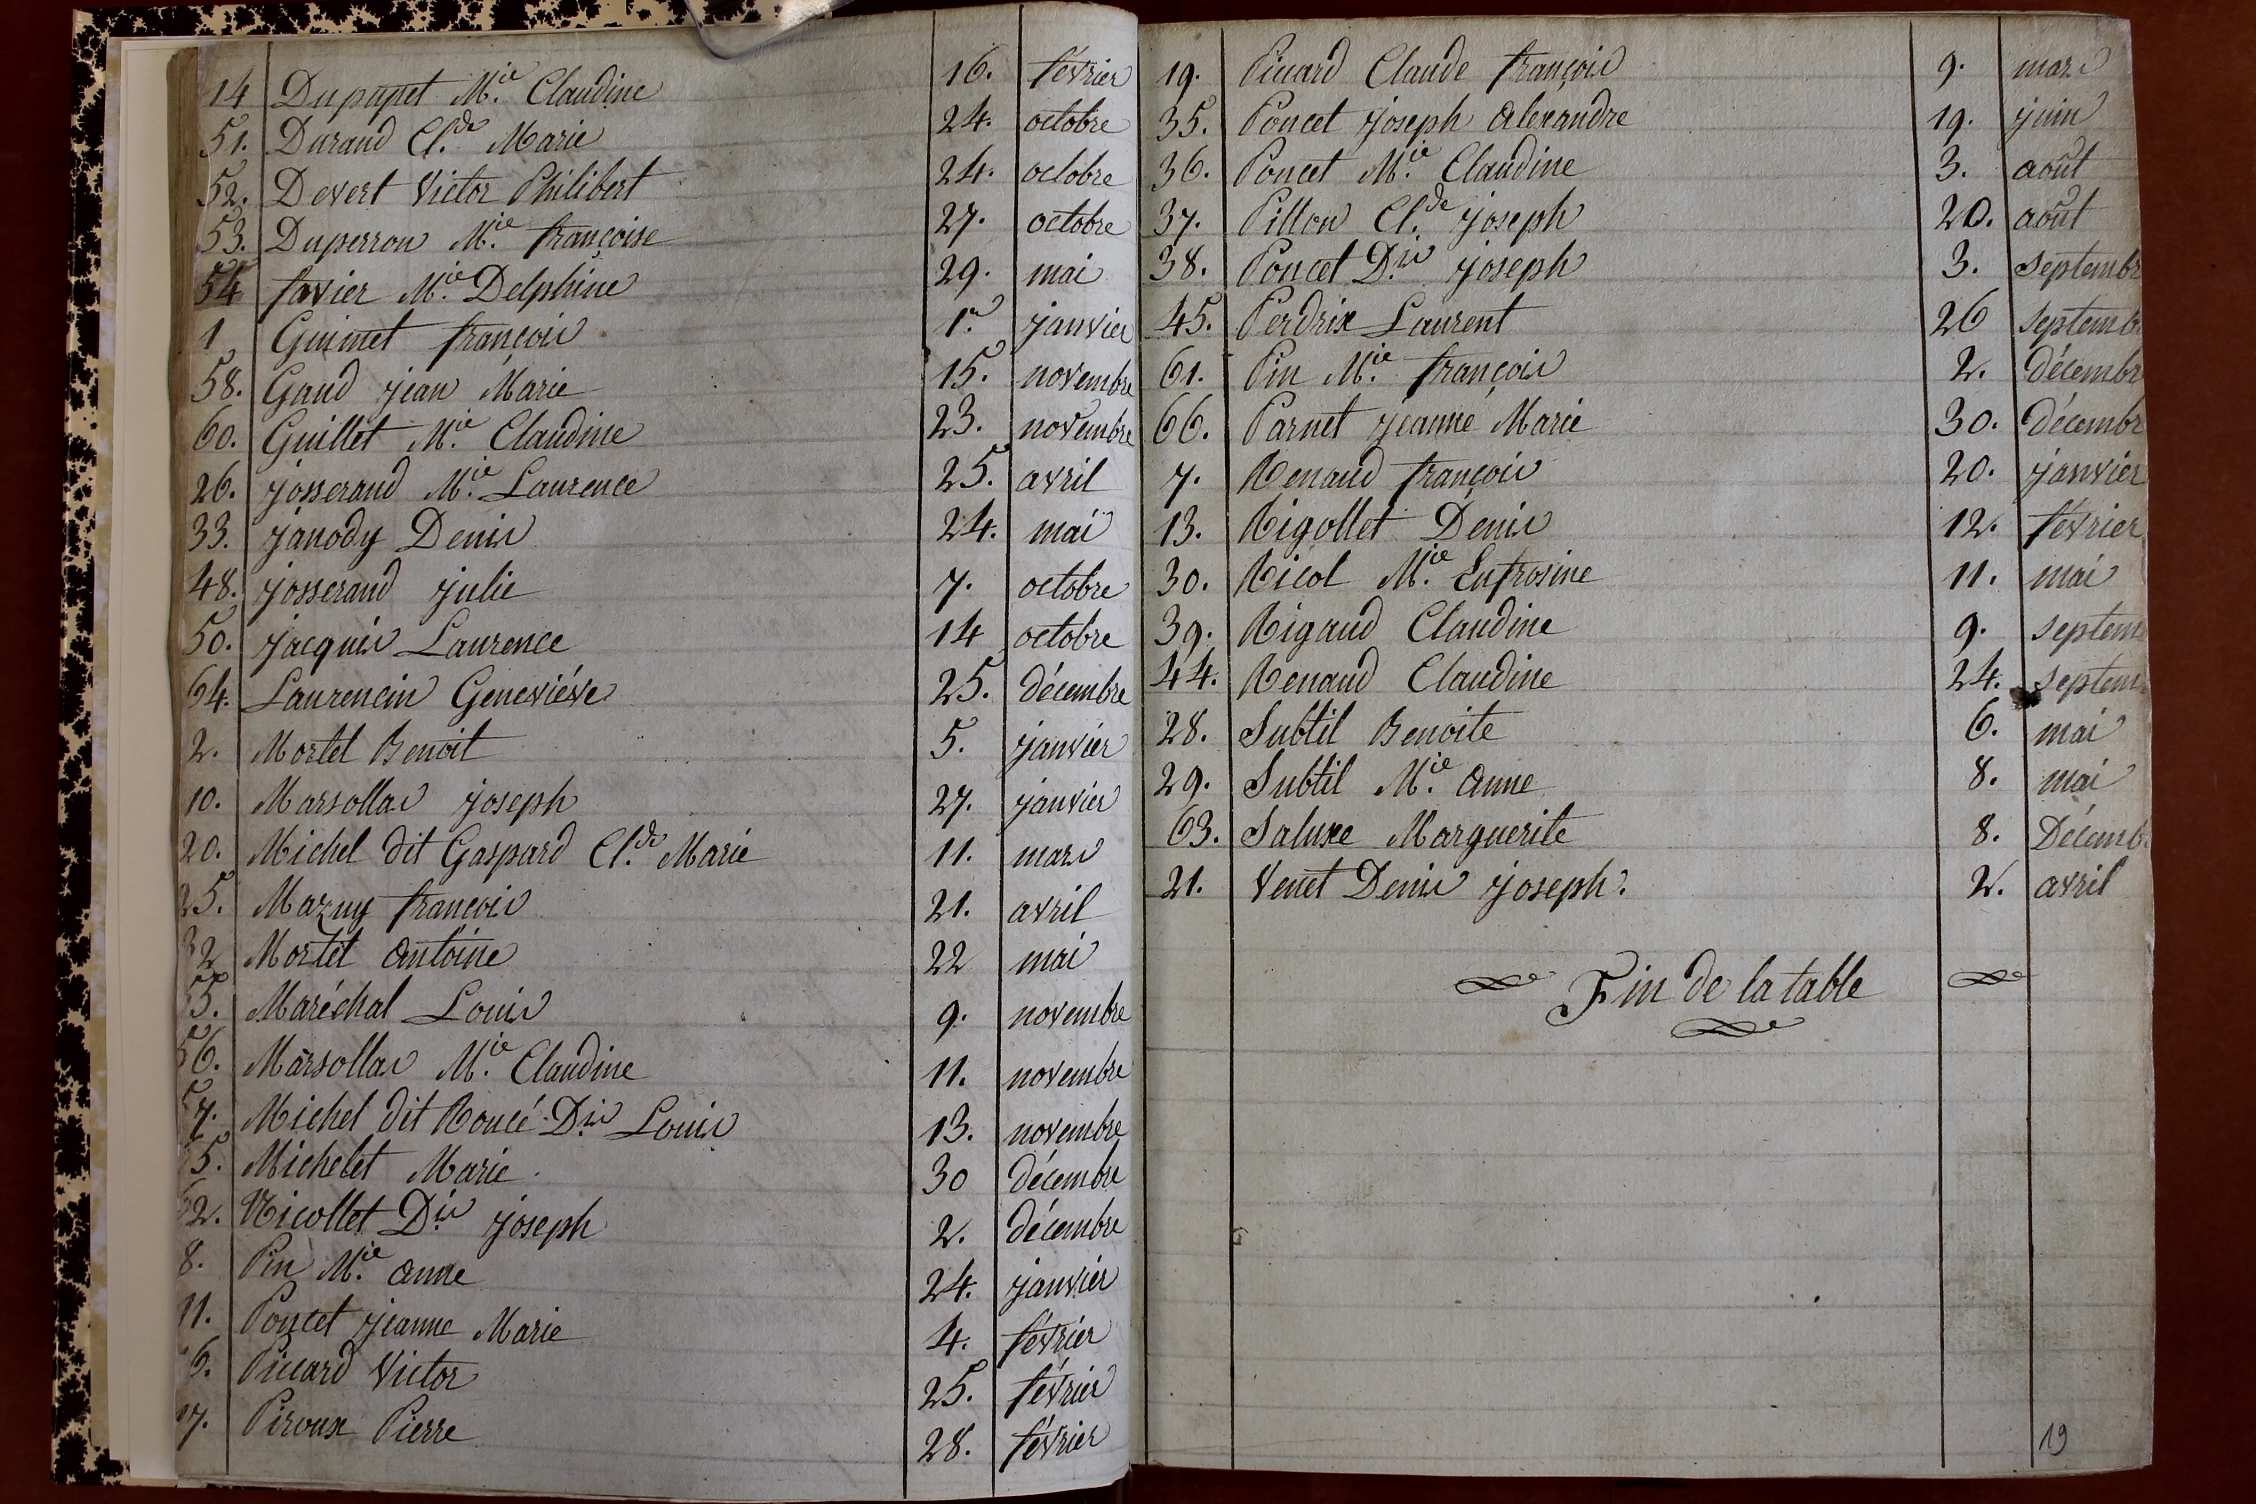 14 Dupaptet M.ie Claudine 16. février
51. Durand Cl.de Marie 24. octobre
52. Devert Victor Philibert 24. octobre
53. Duperron M.ie françoise 27. octobre
54 favier M.ie Delphine 29. mai
1 Guimet françois 1.er janvier
58. Gaud jean Marie 15. novembre
60. Guillet M.ie Claudine 23. novembre
26. josserand M.ie Laurence 25. avril
33. janody Denis 24. mai
48. josserand julie 7. octobre
50. jacquis Laurence 14 octobre
64. Laurencin Geneviéve 25. décembre
2. Mortel Benoit 5. janvier
10. Marsollas joseph 27. janvier
20. Michel dit Gaspard Cl.de Marie 11. mars
25. Mazuy françois 21. avril
32 Mortet antoine 22 mai
5. Maréchal Louis 9. novembre
56. Marsollas M.ie Claudine 11. novembre
57. Michel dit Roncé D.is Louis 13. novembre
5. Michelet Marie 30 décembre
62. Nicollet D.is joseph 2. décembre
8. Pin M.ie anne 24. janvier
11. Poncet jeanne Marie 4. février
6. Piccard Victor 25. février
17. Piroux Pierre 28. février
19. Picard Claude françois 9. mars
35. Poncet joseph alexandre 19. juin
36. Poncet M.ie Claudine 3. août
37. Pillon Cl.de joseph 20. août
38. Poncet D.is joseph 3. septembr
45. Perdrix Laurent 26 septemb
61. Pin M.ie françois 2. décembr
66. Parnet jeanne Marie 30. décembr
7. Renaud françois 20. janvier
13. Rigollet Denis 12. février
30. Ricol M.ie Eufrosine 11. mai
39. Rigaud Claudine 9. septem
44. Renaud Claudine 24. septem
28. Subtil Benoite 6. mai
29. Subtil M.ie anne 8. mai
63. Saluxe Marguerite 8. Décemb
21. Venet Denis joseph. 2. avril
Fin de la table
19